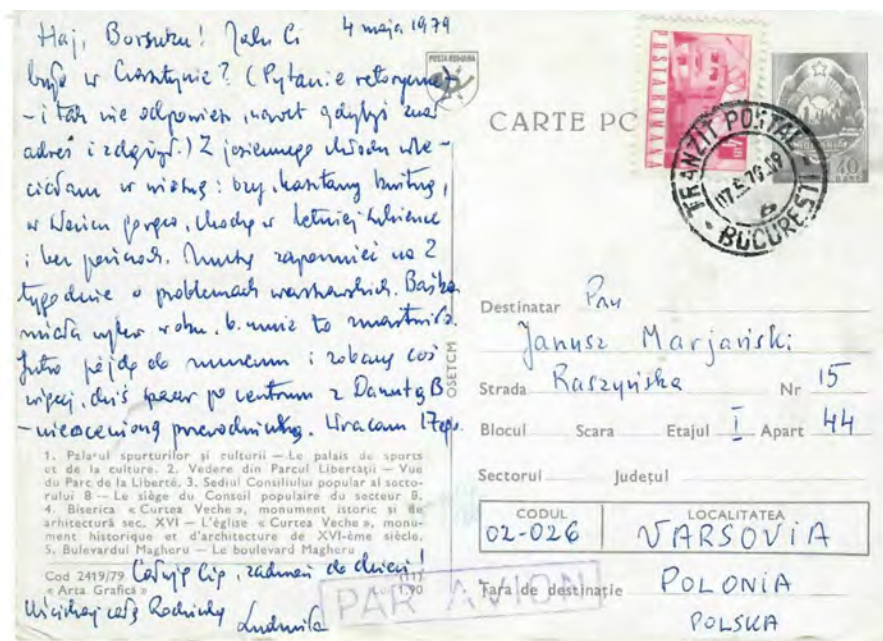 4 maja 1979
Haj, Borsuku! Jak Ci
było w Chorzynie? (Pytanie retoryczne
- i tak nie odpowiesz, nawet gdybyś znał
adres i zdążył.) Z jesiennego chłodu wle-
ciałam w wiosnę: bzy, kasztany kwitną,
w słońcu gorąco, chodzę w letniej sukience
i bez pończoch. Muszę zapomnieć na 2
tygodnie o problemach warszawskich. Baśka
miała wylew w oku, b. mnie to zmartwiło.
Jutro pójdę do muzeum i zobaczę coś
więcej, dziś spacer po centrum z Danutą B
- nieocenioną przewodniczką. Wracam 17ego.
1. Palatul sporturilor și culturii — Le palais de sports
et de la culture. 2. Vedere din Parcul Libertății — Vue
du Parc de la Liberté. 3. Sediul Consiliului popular al secto-
rului 8 — Le siège du Conseil populaire du secteur 8.
4. Biserica « Curtea Veche », monument istoric și de
arhitectură sec. XVI — L'église « Curtea Veche », monu-
ment historique et d'architecture de XVI-ème siècle.
5. Bulevardul Magheru — Le boulevard Magheru
Cod 2419/79
« Arta Grafică »
Całuję Cię, zadzwoń do
Uściskaj całą Rodzinkę
Ludmiła
OSETCM
POSTA ROMANA
CARTE PO
POSTA ROMANA
40
TRANZIT POSTAL
07.5.79.09
6
BUCUREȘTI
Destinatar Pan
Janusz Marjański
Strada Raszyńska Nr 15
Blocul Scara Etajul I Apart 44
Sectorul Județul
CODUL LOCALITATEA
02-026 VARSOVIA
Țara de destinație POLONIA
POLSKA
PAR AVION